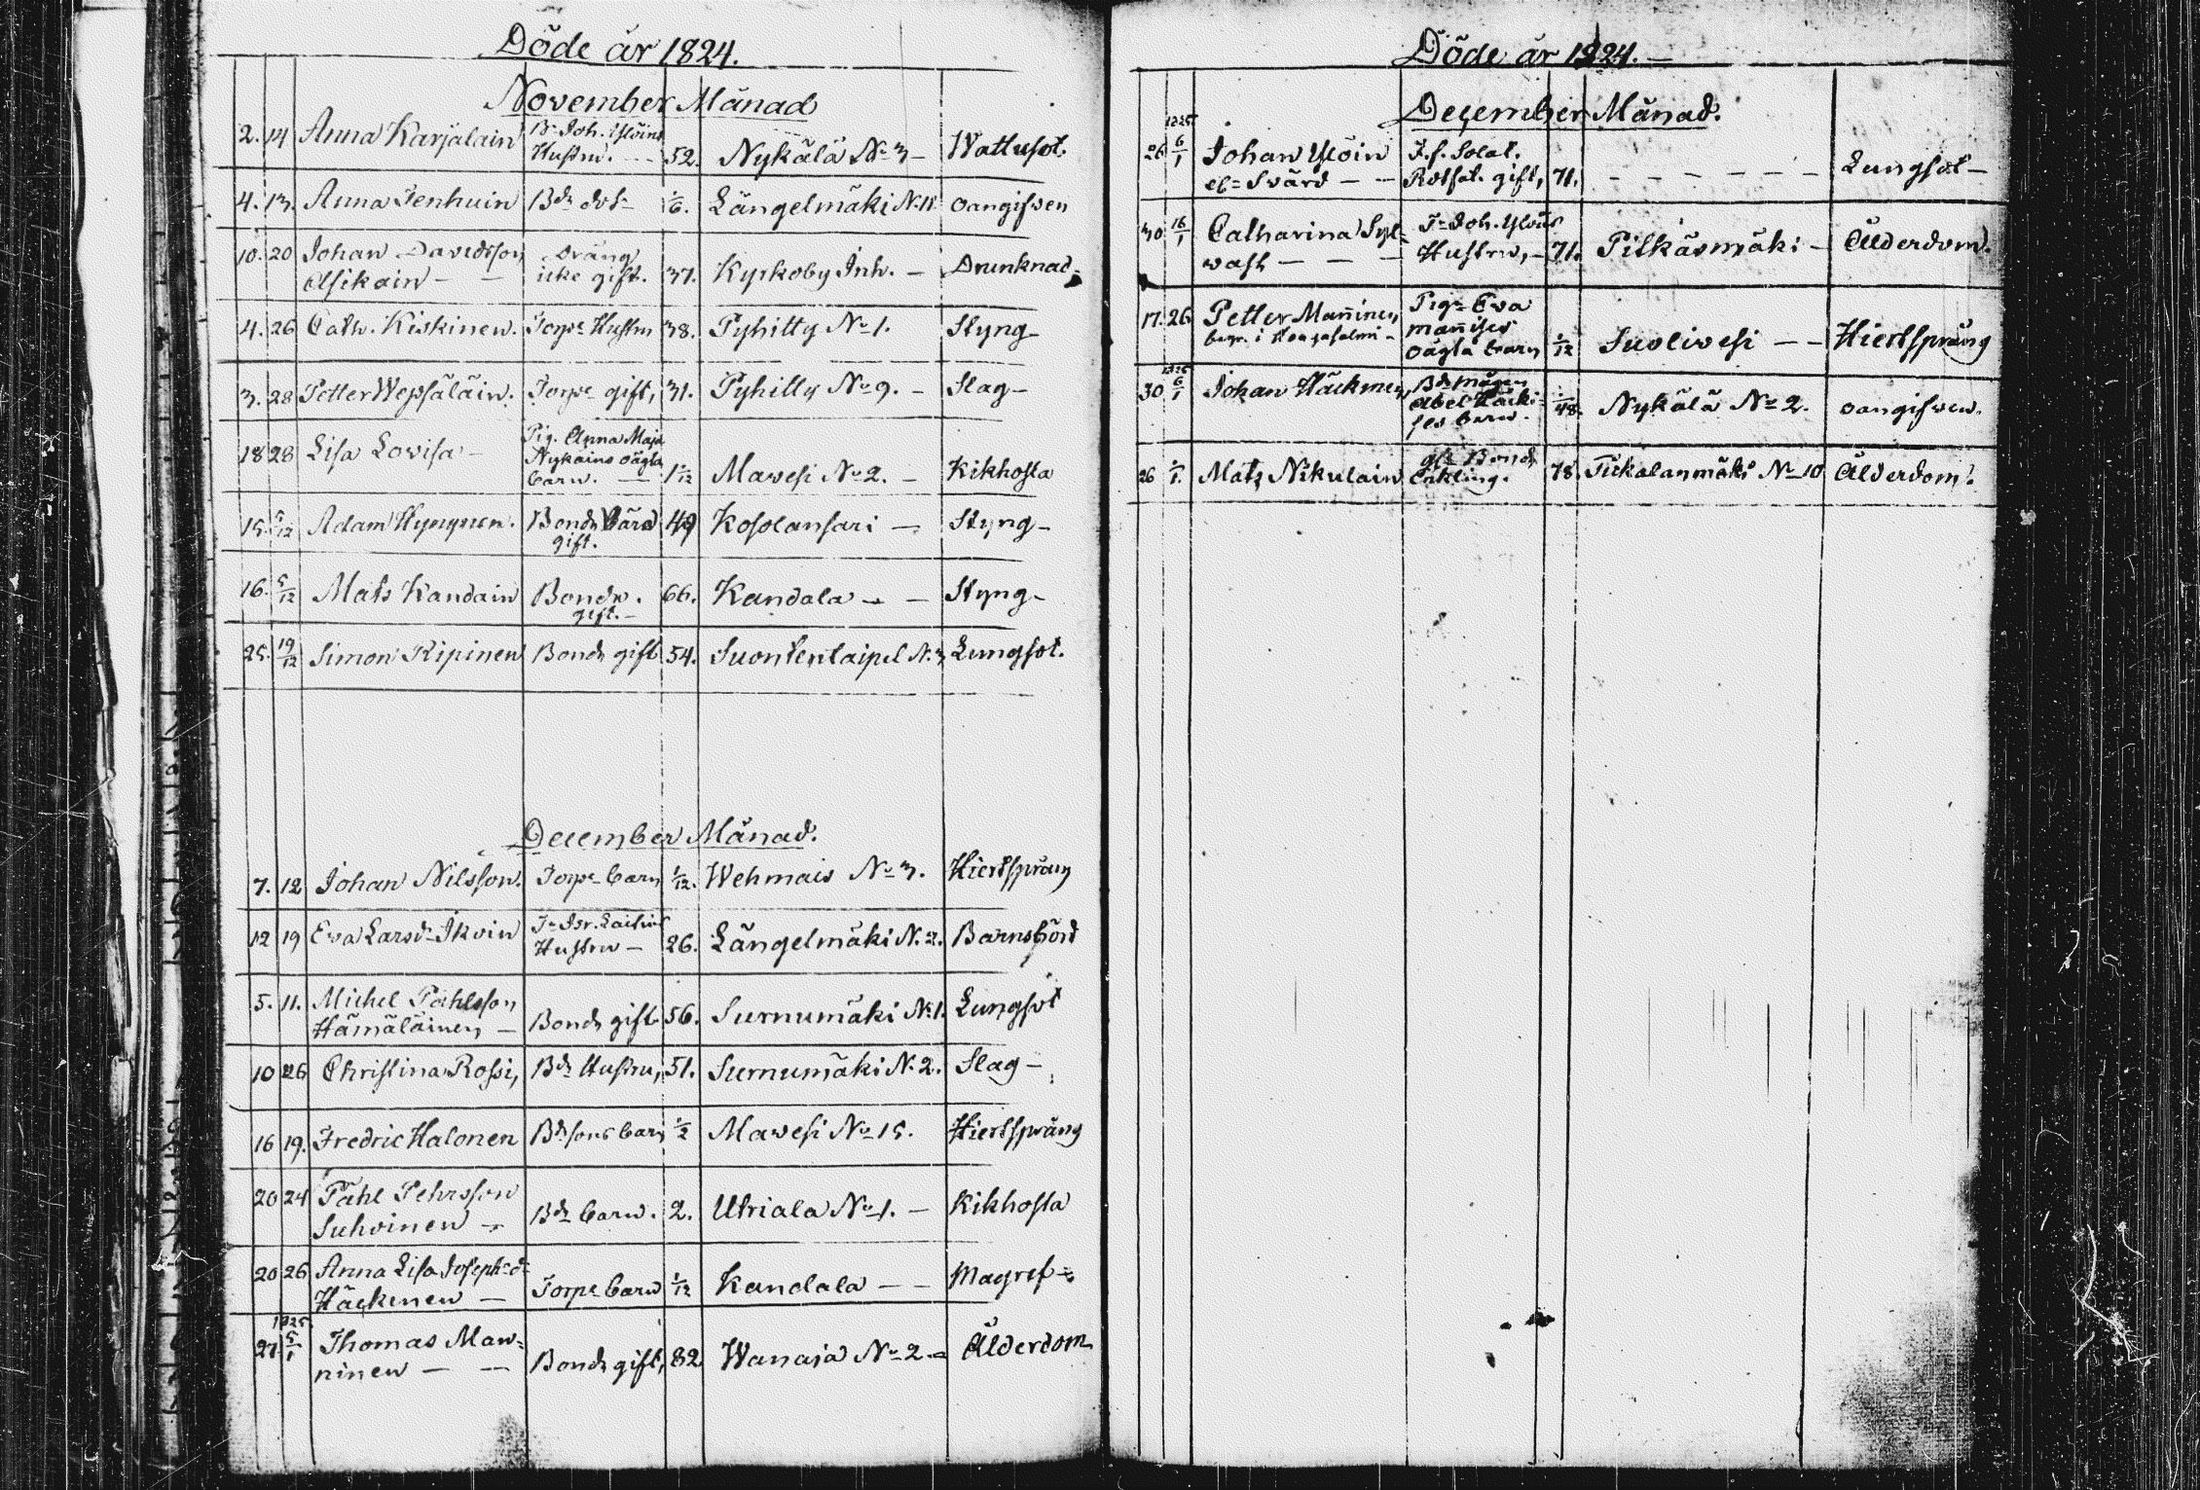 Döde år 1824.
November Månad
2. 14 Anna Karjalain Bd Joh. Ylöins
Hustru. 52. Nykälä No 3 Wattusot.
4. 13. Anna Tenhuin Bd dotr 1/6. Längelmäki N. 11 oangifwen
10. 20 Johan Davidsson Dräng
Asikain icke gift. 37. Kyrkoby Inh. Drunknad
4. 26 Cath. Kiskinen. Torpe Hustru 38. Pyhitty No 1. Styng
3. 28 Petter Wepsäläin. Torpe gift, 31. Pyhitty No 9. Slag
18 28 Lisa Lovisa Pig. Anna Maja
Nykäins oägta
barn. 1/12 Mavesi No 2. Kikhosta
15. 5/12 Adam Hyngynen. Bonde 49 Kosolansari Styng
gift.
16. 5/12 Mats Kandain Bonde. 66. Kandala Styng
gift.
25. 19/12 Simon Ripinen Bonde gift 54. Suontentaipal N. 3 Lungsot.
December Månad.
7. 12 Johan Nilsson. Torpe barn 1/12. Wehmais No 3. Hiertspräng
12 19 Eva Larsd. Ikoin Tr Isr. Laitins
Hustru 26. Längelmäki N. 2. Barnsbörd
5. 11. Michel Påhlsson
Hämäläinen Bonde gift 56. Surnumäki N. 1. Lungsot
10 26 Christina Rossi, Bd Hustru, 51. Surnumäki N. 2. Slag
16 19. Fredric Halonen Bd sons barn 1/2 Mavesi No 15. Hiertspräng
20 24 Påhl Pehrsson
Suhoinen Bd barn. 2. Utriala No 1. Kikhosta
20 26 Anna Lisa Josephsd
Häckinen Torpe barn 1/12 Kandala Magref
1825
27 5/1 Thomas Man-
ninen Bonde gift, 82 Wanaja No 2 Ålderdom
Döde år 1824.
December Månad.
1825
26 6/1 Johan Ylöin F. f. Solat.
el. Svärd Rotfat. gift, 71. Lungsot
30 16/1 Catharina Syl- Tr Joh. Ylöins
wast Hustru, 71. Pitkäsmäki Ålderdom.
17. 26 Petter Manninen Pig. Eva
begr. i Kangasalmi Mannises
oägta barn 1/12 Suoliwesi Hiertspräng
1825
30 6/1 Johan Häckinen, Bd mågen
Abel Häcki-
ses barn. 1/48. Nykälä No 2. oangifwen.
26 1/1. Mats Nikulain gl. Bonde
Enkling. 78. Tiikalanmäki No 10 Ålderdom.